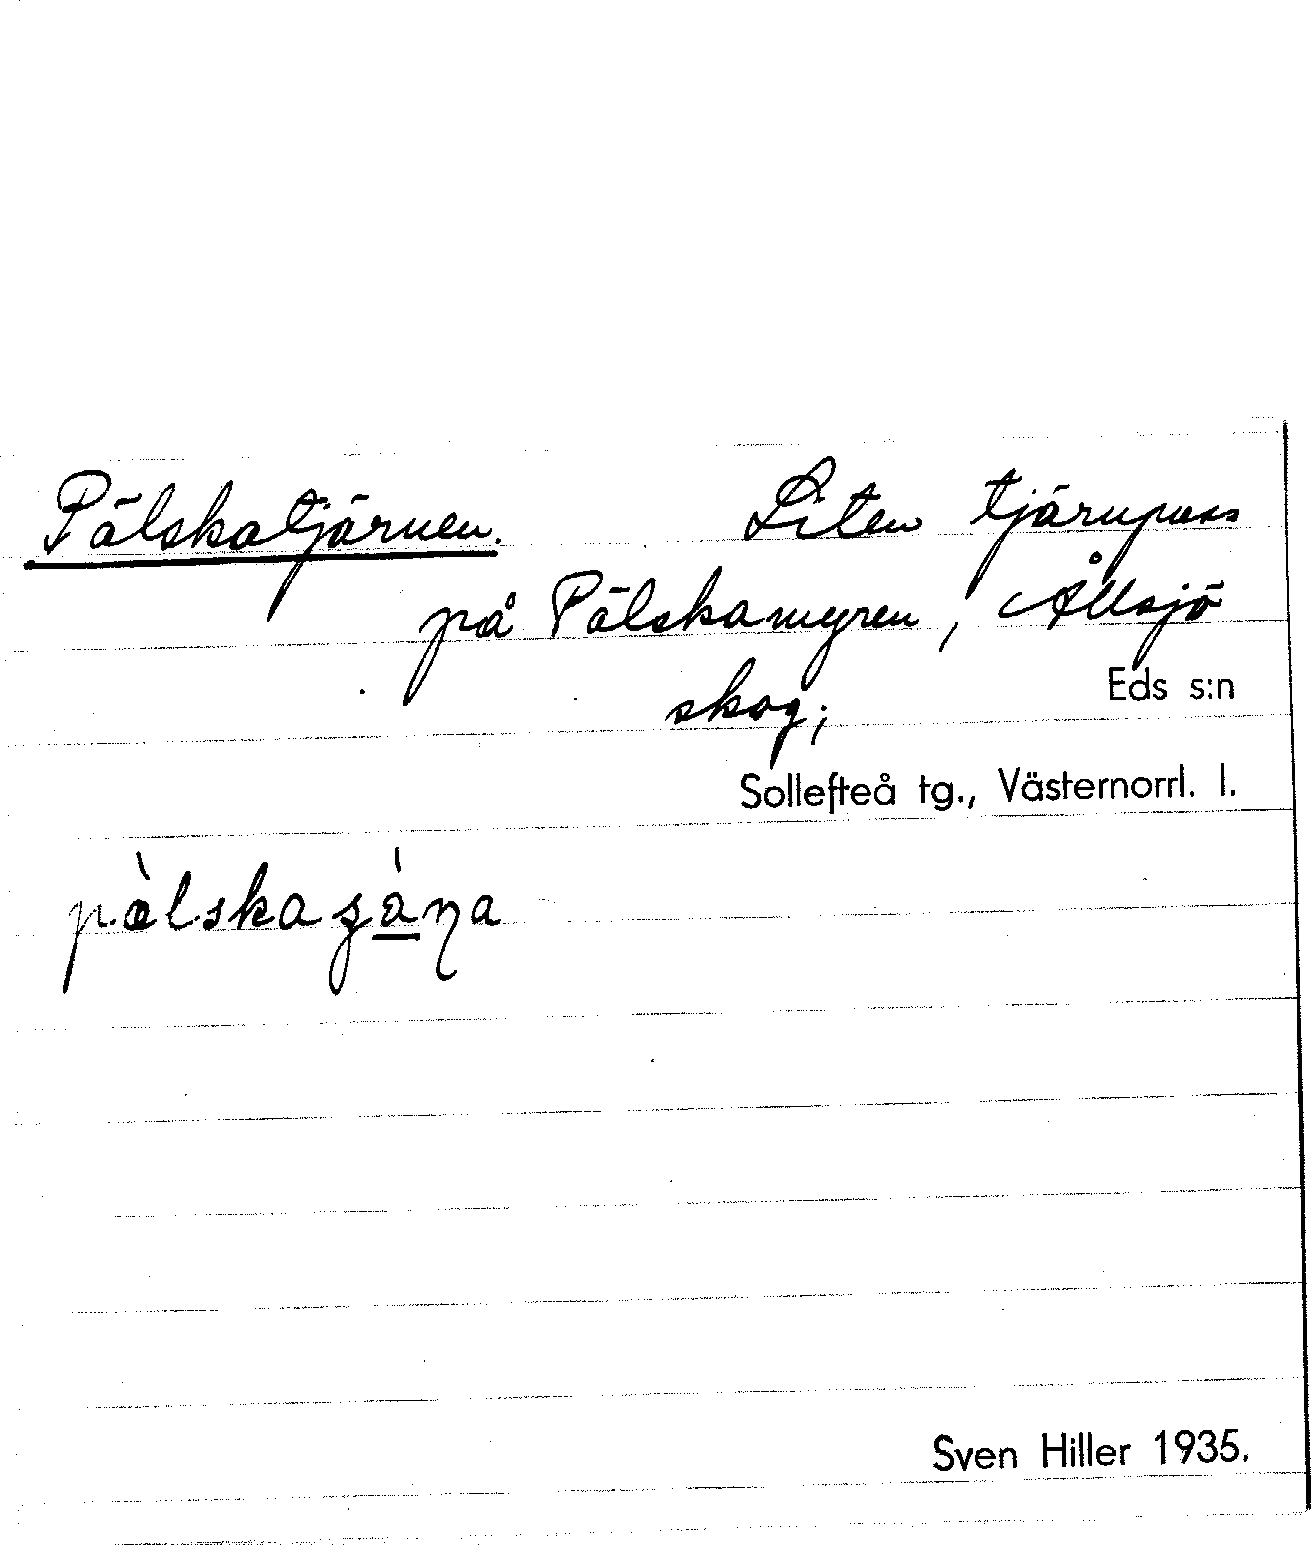 Pålskatjärnen. Liten tjärnpuss
på Pålskamyren, Ållsjö
skog;
Eds s:n
Sollefteå tg., Västernorrl. l.
Sven Hiller 1935.